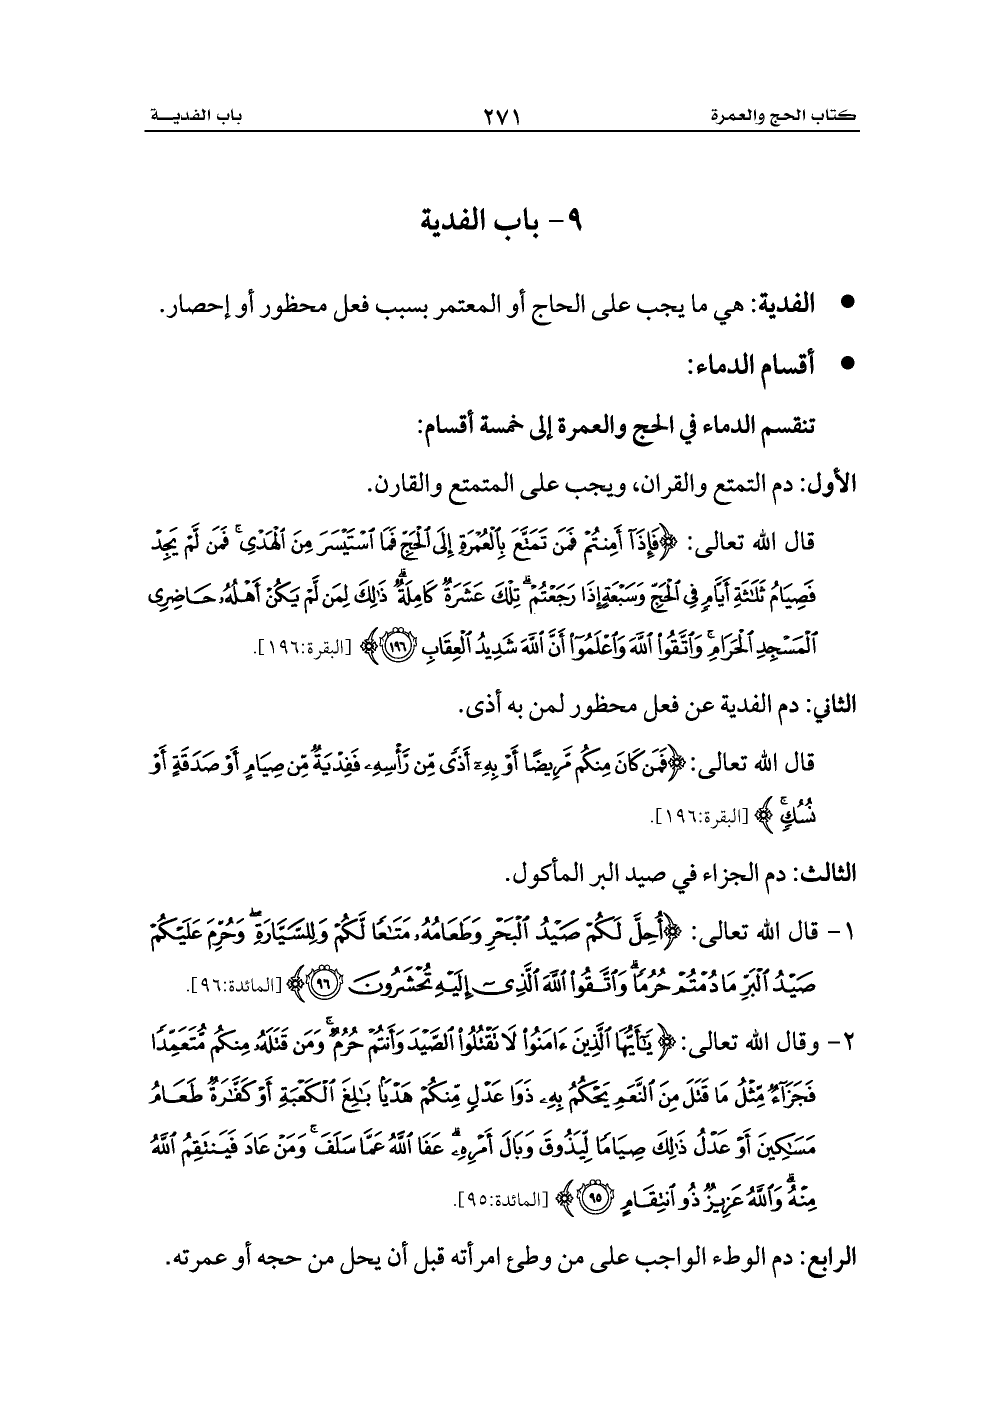 كتاب الحج والعمرة ٢٧١ باب الفديـــة
٩- باب الفدية
● الفدية: هي ما يجب على الحاج أو المعتمر بسبب فعل محظور أو إحصار.
● أقسام الدماء:
تنقسم الدماء في الحج والعمرة إلى خمسة أقسام:
الأول: دم التمتع والقران، ويجب على المتمتع والقارن.
قال الله تعالى: ﴿فَإِذَآ أَمِنتُمْ فَمَن تَمَتَّعَ بِٱلْعُمْرَةِ إِلَى ٱلْحَجِّ فَمَا ٱسْتَيْسَرَ مِنَ ٱلْهَدْىِ ۚ فَمَن لَّمْ يَجِدْ
فَصِيَامُ ثَلَٰثَةِ أَيَّامٍ فِى ٱلْحَجِّ وَسَبْعَةٍ إِذَا رَجَعْتُمْ ۗ تِلْكَ عَشَرَةٌ كَامِلَةٌ ۗ ذَٰلِكَ لِمَن لَّمْ يَكُنْ أَهْلُهُۥ حَاضِرِى
ٱلْمَسْجِدِ ٱلْحَرَامِ ۚ وَٱتَّقُوا۟ ٱللَّهَ وَٱعْلَمُوٓا۟ أَنَّ ٱللَّهَ شَدِيدُ ٱلْعِقَابِ ١٩٦﴾ [البقرة:١٩٦].
الثاني: دم الفدية عن فعل محظور لمن به أذى.
قال الله تعالى: ﴿فَمَن كَانَ مِنكُم مَّرِيضًا أَوْ بِهِۦٓ أَذًى مِّن رَّأْسِهِۦ فَفِدْيَةٌ مِّن صِيَامٍ أَوْ صَدَقَةٍ أَوْ
نُسُكٍ ۚ﴾ [البقرة:١٩٦].
الثالث: دم الجزاء في صيد البر المأكول.
١- قال الله تعالى: ﴿أُحِلَّ لَكُمْ صَيْدُ ٱلْبَحْرِ وَطَعَامُهُۥ مَتَٰعًا لَّكُمْ وَلِلسَّيَّارَةِ ۖ وَحُرِّمَ عَلَيْكُمْ
صَيْدُ ٱلْبَرِّ مَا دُمْتُمْ حُرُمًا ۗ وَٱتَّقُوا۟ ٱللَّهَ ٱلَّذِىٓ إِلَيْهِ تُحْشَرُونَ ٩٦﴾ [المائدة:٩٦].
٢- وقال الله تعالى: ﴿يَٰٓأَيُّهَا ٱلَّذِينَ ءَامَنُوا۟ لَا تَقْتُلُوا۟ ٱلصَّيْدَ وَأَنتُمْ حُرُمٌ ۚ وَمَن قَتَلَهُۥ مِنكُم مُّتَعَمِّدًا
فَجَزَآءٌ مِّثْلُ مَا قَتَلَ مِنَ ٱلنَّعَمِ يَحْكُمُ بِهِۦ ذَوَا عَدْلٍ مِّنكُمْ هَدْيًۢا بَٰلِغَ ٱلْكَعْبَةِ أَوْ كَفَّٰرَةٌ طَعَامُ
مَسَٰكِينَ أَوْ عَدْلُ ذَٰلِكَ صِيَامًا لِّيَذُوقَ وَبَالَ أَمْرِهِۦ ۗ عَفَا ٱللَّهُ عَمَّا سَلَفَ ۚ وَمَنْ عَادَ فَيَنتَقِمُ ٱللَّهُ
مِنْهُ ۗ وَٱللَّهُ عَزِيزٌ ذُو ٱنتِقَامٍ ٩٥﴾ [المائدة:٩٥].
الرابع: دم الوطء الواجب على من وطئ امرأته قبل أن يحل من حجه أو عمرته.